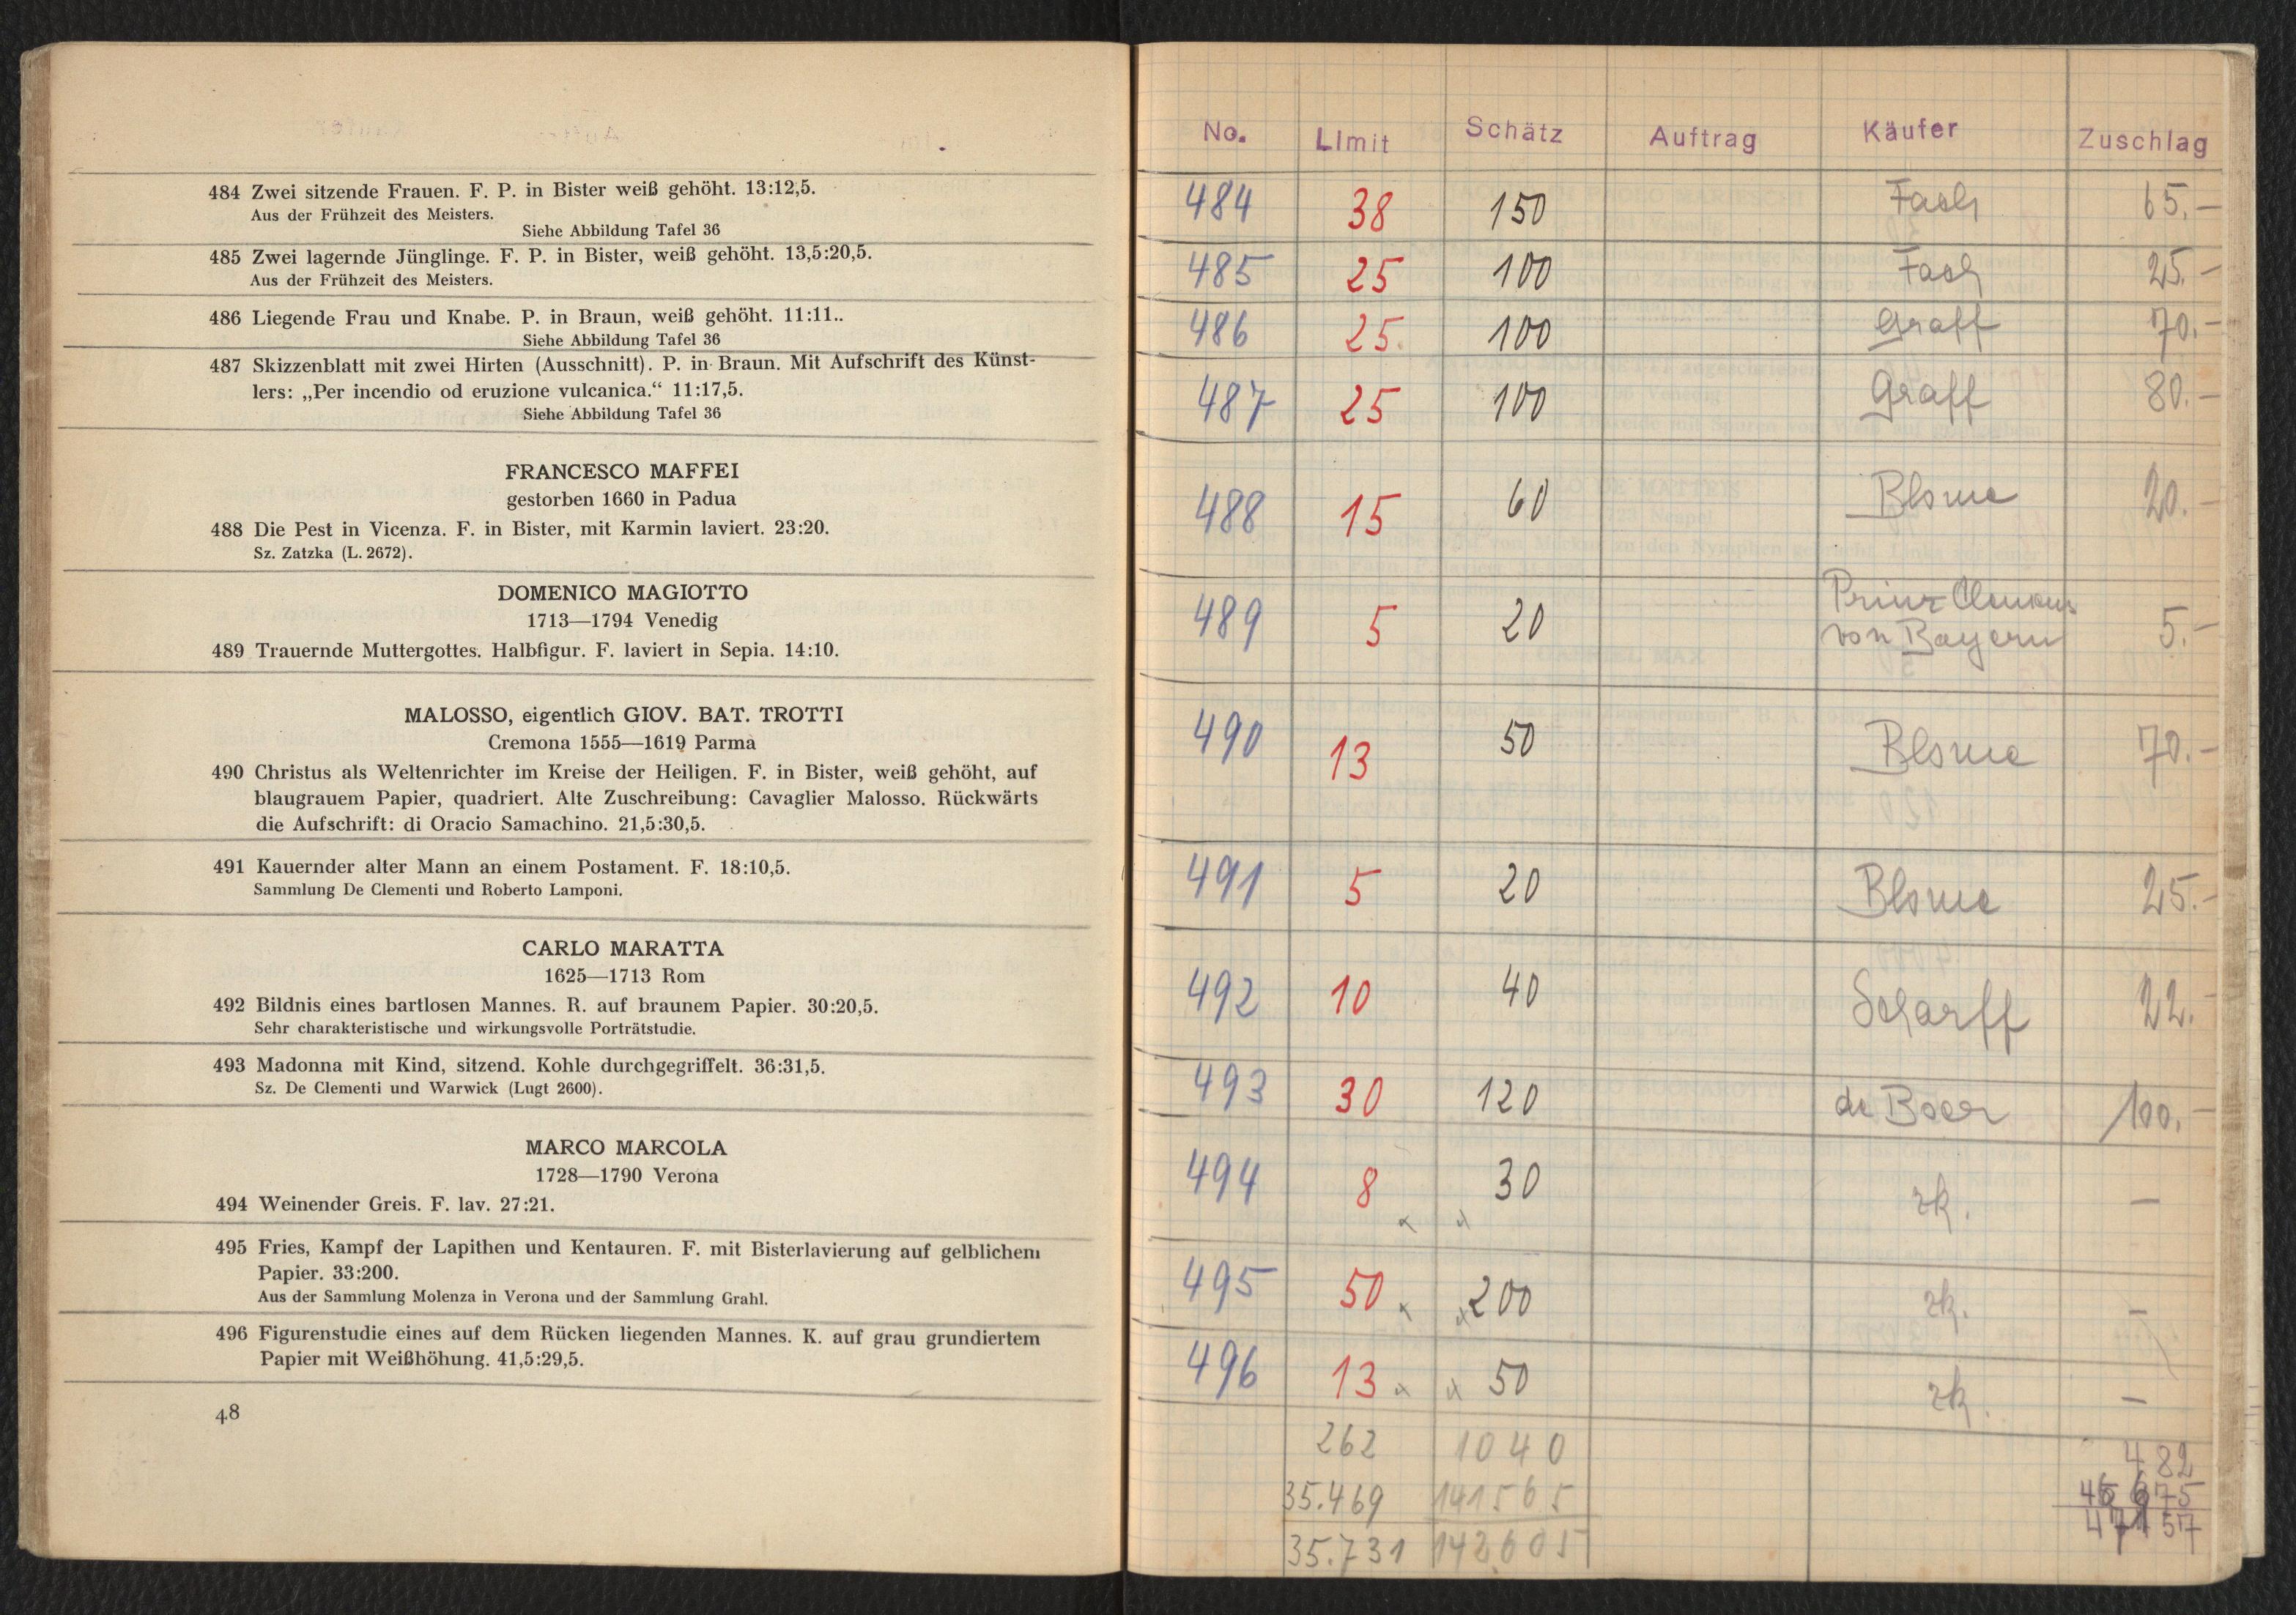 484 Zwei sitzende Frauen. F. P. in Bister weiß gehöht. 13:12,5.
Aus der Frühzeit des Meisters.
Siehe Abbildung Tafel 36
485 Zwei lagernde Jünglinge. F. P. in Bister, weiß gehöht. 13,5:20,5.
Aus der Frühzeit des Meisters.
486 Liegende Frau und Knabe. P. in Braun, weiß gehöht. 11:11..
Siehe Abbildung Tafel 36
487 Skizzenblatt mit zwei Hirten (Ausschnitt). P. in Braun. Mit Aufschrift des Künst-
lers: „Per incendio od eruzione vulcanica.“ 11:17,5.
Siehe Abbildung Tafel 36
FRANCESCO MAFFEI
gestorben 1660 in Padua
488 Die Pest in Vicenza. F. in Bister, mit Karmin laviert. 23:20.
Sz. Zatzka (L. 2672).
DOMENICO MAGIOTTO
1713—1794 Venedig
489 Trauernde Muttergottes. Halbfigur. F. laviert in Sepia. 14:10.
MALOSSO, eigentlich GIOV. BAT. TROTTI
Cremona 1555—1619 Parma
490 Christus als Weltenrichter im Kreise der Heiligen. F. in Bister, weiß gehöht, auf
blaugrauem Papier, quadriert. Alte Zuschreibung: Cavaglier Malosso. Rückwärts
die Aufschrift: di Oracio Samachino. 21,5:30,5.
491 Kauernder alter Mann an einem Postament. F. 18:10,5.
Sammlung De Clementi und Roberto Lamponi.
CARLO MARATTA
1625—1713 Rom
492 Bildnis eines bartlosen Mannes. R. auf braunem Papier. 30:20,5.
Sehr charakteristische und wirkungsvolle Porträtstudie.
493 Madonna mit Kind, sitzend. Kohle durchgegriffelt. 36:31,5.
Sz. De Clementi und Warwick (Lugt 2600).
MARCO MARCOLA
1728—1790 Verona
494 Weinender Greis. F. lav. 27:21.
495 Fries, Kampf der Lapithen und Kentauren. F. mit Bisterlavierung auf gelblichem
Papier. 33:200.
Aus der Sammlung Molenza in Verona und der Sammlung Grahl.
496 Figurenstudie eines auf dem Rücken liegenden Mannes. K. auf grau grundiertem
Papier mit Weißhöhung. 41,5:29,5.
48
No. LImit Schätz Auftrag Käufer Zuschlag
484 38 150 Fach 65.-
485 25 100 Fach 25.-
486 25. 100 Graff 70.-
487 25 100 Graff 80.-
488 15 60 Blome 20.-
489 5 20 Prinz Clemens von Bayern 5.-
490 13 50 Blome 70.-
491 5 20 Blome 25.-
492 10 40 Scharff 22.-
493 30 120 de Boer 100.-
494 8 30 zk. —
495 50 x x 200 zk. —
496 13 x x 50 zk. —
262 1040 482
35.469 141565 46 675
35.731 142605 47157